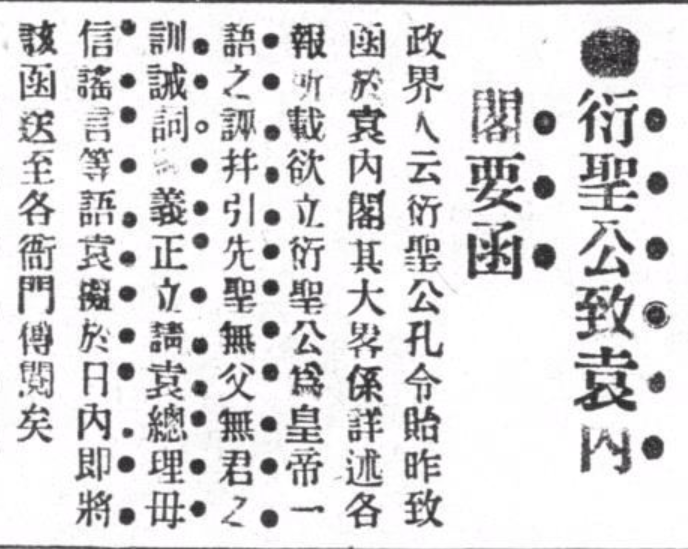 ●衍聖公致袁內
閣要函
政界人云衍聖公孔令貽昨致
函於袁內閣其大畧係詳述各
報所載欲立衍聖公爲皇帝一
語之誣幷引先聖無父無君之
訓誡詞義正立請袁總理毋
信謠言等語袁擬於日內即將
該函送至各衙門傳閱矣